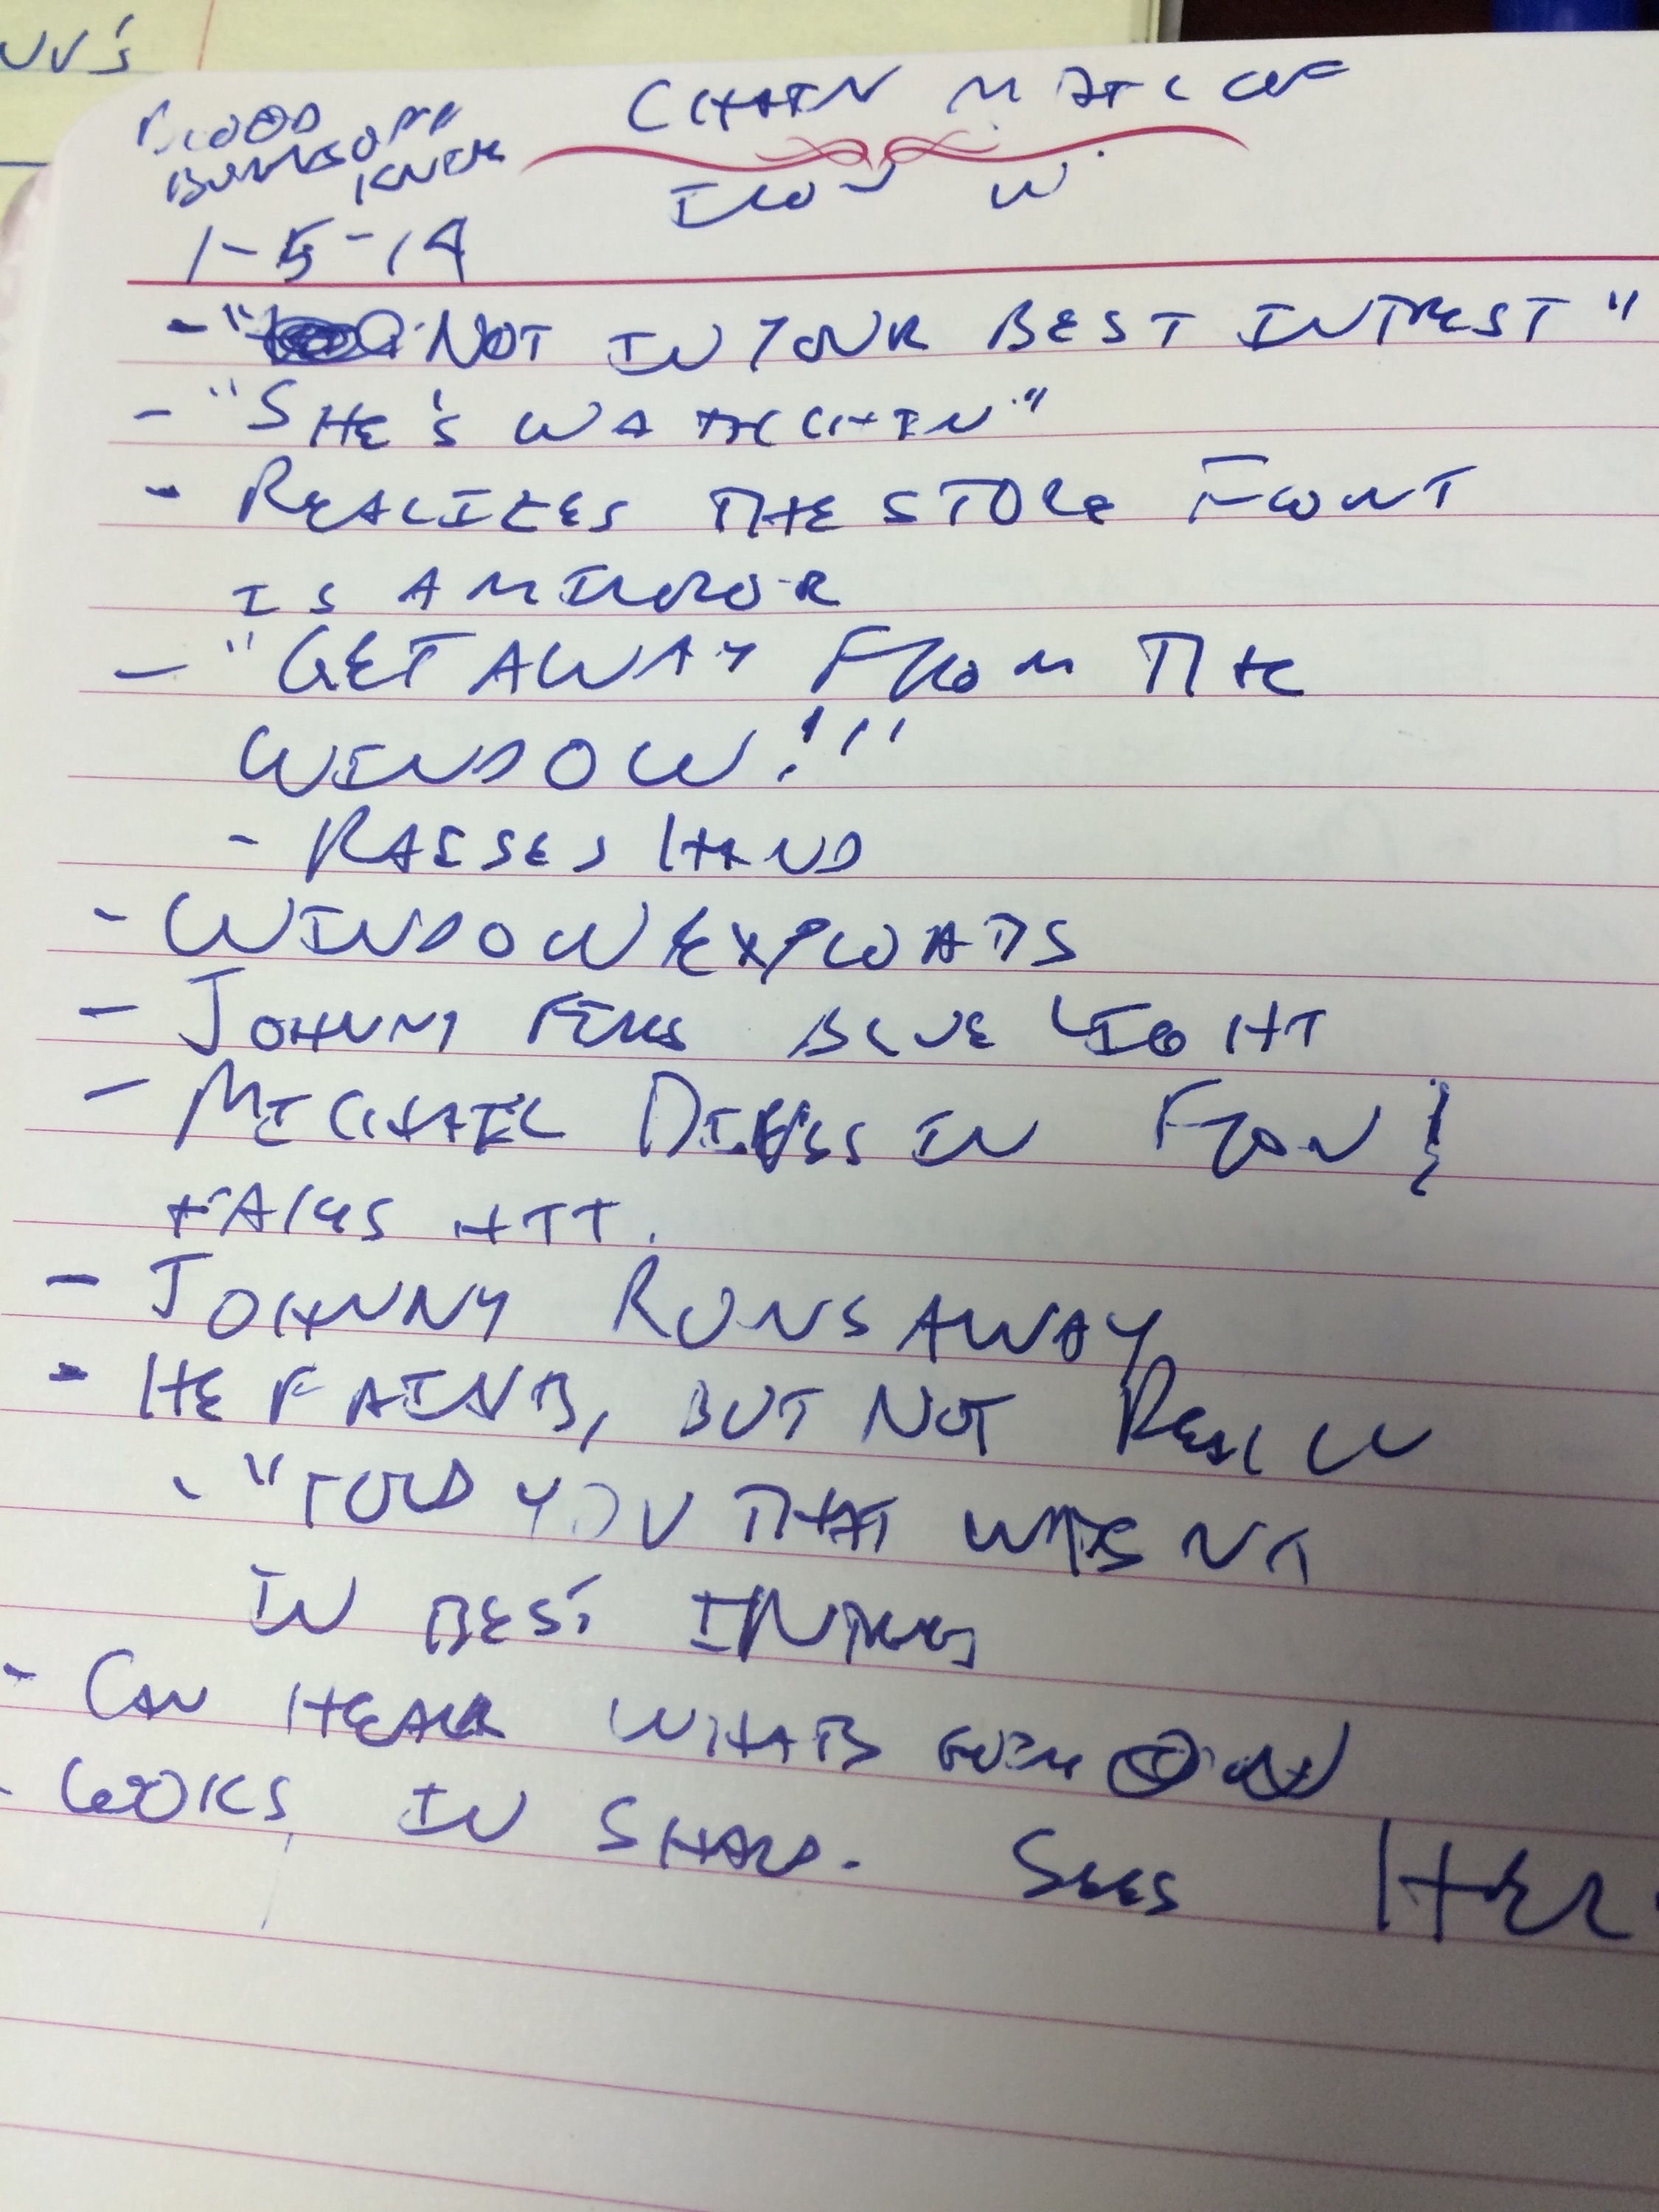 UV's
CHAIN MAIL OF
BLOOD
BURNS ON
KNICK
IRON W
1-5-14
- "NOT IN YOUR BEST INTREST"
- "SHE'S WATCHIN"
- REALIZES THE STORE FRONT
IS A MIRROR
- "GET AWAY FROM THE
WINDOW!!!
- RAISES HAND
- WINDOW EXPLOADS
- JOHNNY FIRES BLUE LIGHT
- MICHAEL DIVES IN FRON
TAKES HIT.
- JOHNNY RUNS AWAY
- HE FAINTS, BUT NOT REALLY
- "TOLD YOU THAT WASNT
IN BEST INTRES
- CAN HEAR WHATS GOIN ON
- LOOKS IN SHARD. SEES HER.